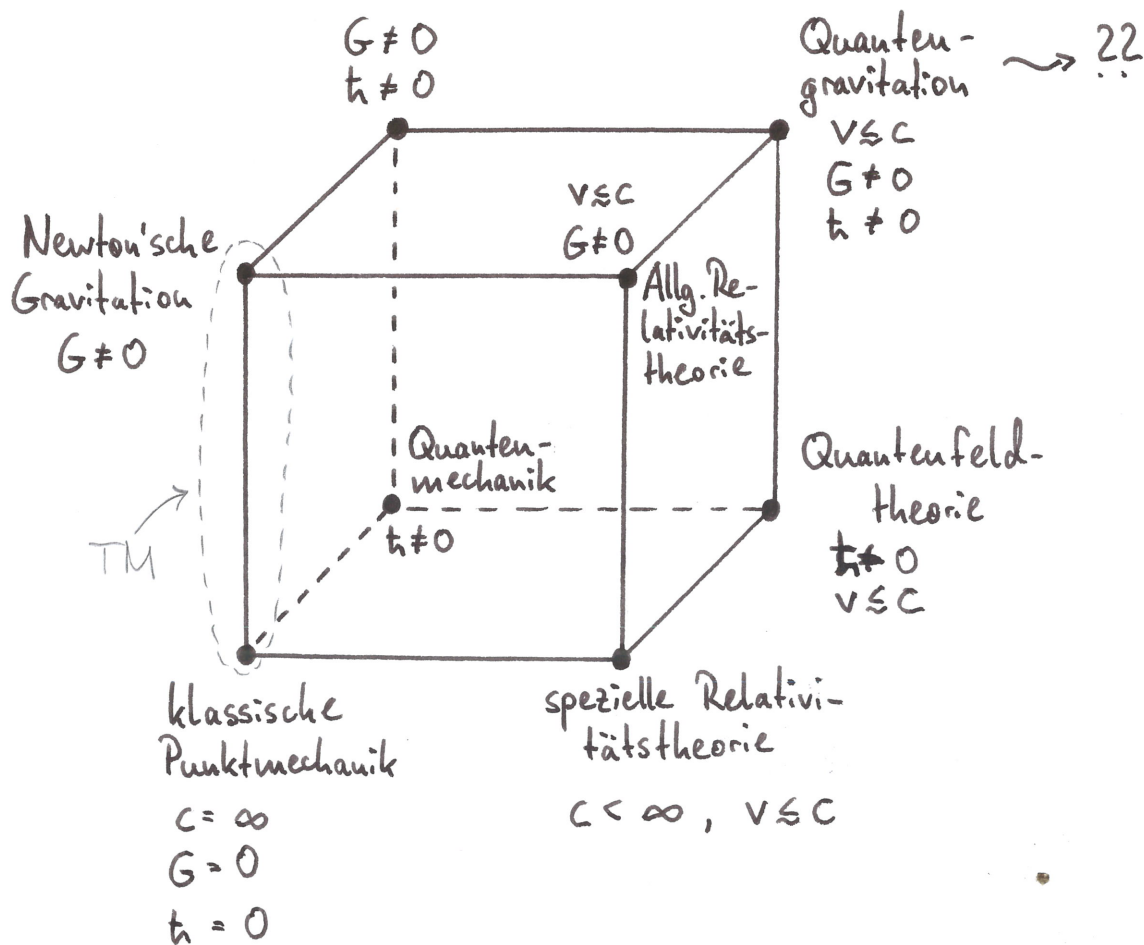 G ≠ 0
ħ ≠ 0
Quanten-
gravitation
⇝ ??
v ≲ c
G ≠ 0
ħ ≠ 0
v ≲ c
G ≠ 0
Newton'sche
Gravitation
G ≠ 0
Allg. Re-
lativitäts-
theorie
Quanten-
mechanik
ħ ≠ 0
Quantenfeld-
theorie
ħ ≠ 0
v ≲ c
TM
klassische
Punktmechanik
c = ∞
G = 0
ħ = 0
spezielle Relativi-
tätstheorie
c < ∞ , v ≲ c